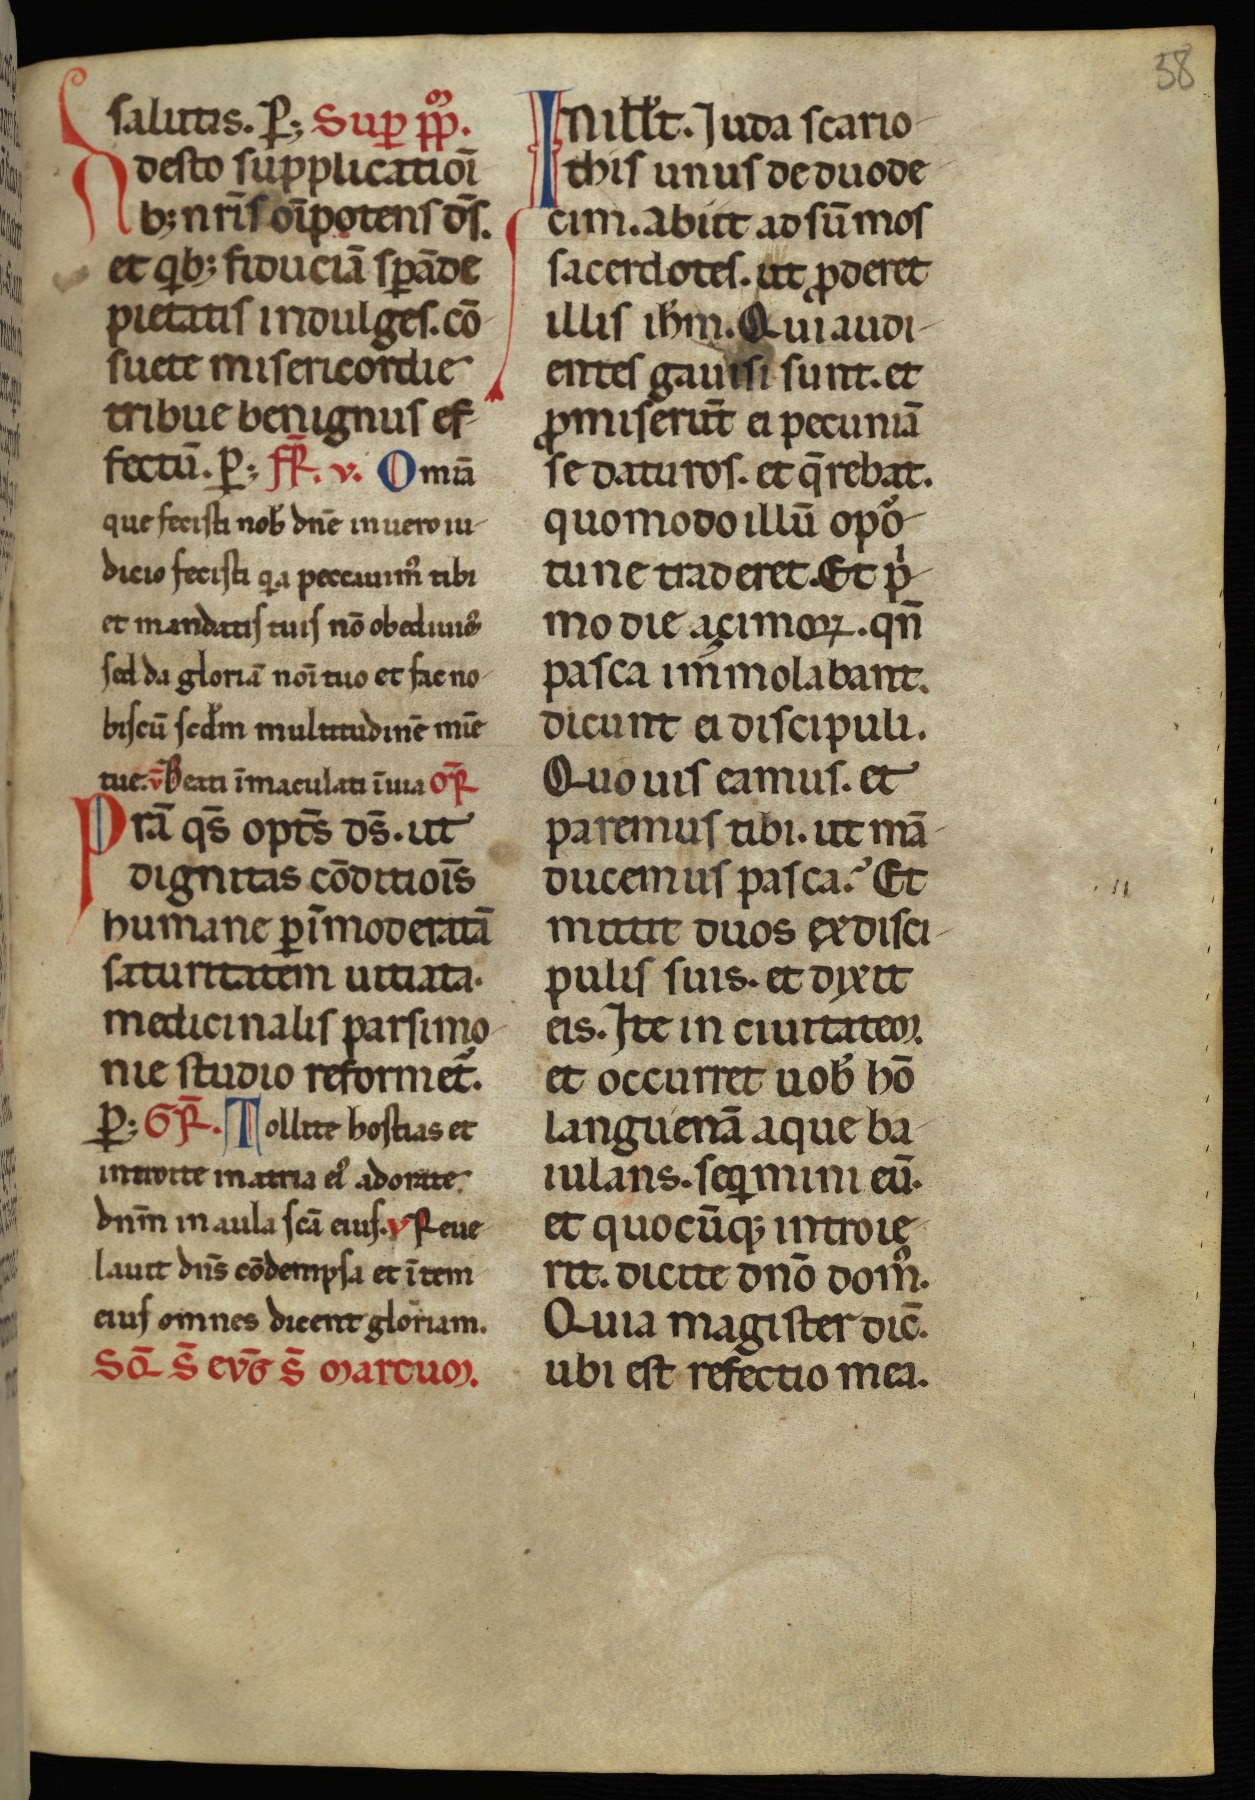 58
salutis. P̲; Sup̲ pp̅o.
Adesto supplicatioı̅
b; nr̅is oı̅potens ds̅.
et qb; fiduciā sp̲āde
pietatis indulges. cō
suete misericordie
tribue benignus ef
fectū. P̲; FR̅. v. Om̅ia
que fecisti nob̅ dn̅e in uero iu
dicio fecisti qa peccauim᾽ tibi
et mandatis tuis nō obediuim᾽
sed da gloriā noı̅ tuo et fac no
biscū scdm̅ multitudinē mı̅e
tue. v̅ Beati ı̅maculati ı̅ uia OR̅
Prā qs̅ opt̅s ds̅. ut
dignitas cōditioı̅s
humane p̲ ı̅moderatā
saturitatem uitiata.
medicinalis parsimo
nie studio reformet᾽.
P̲; GR̅. Tollite hostias et
introite in atria ei᾽ adorate
dnm̅ in aula scā eius. v Reue
lauit dn̅s cōdempsa et ı̅ tem
eius omnes dicent gloriam.
SQ̅ S̅ EVG̅ S̅ Marcum.
IN ill̅ t̅. Juda scario
this unus de duode
cim. abiit ad sūmos
sacerdotes. ut p̲deret
illis ih̅m. Qui audi
entes gauisi sunt. et
p̲miserūt ei pecuniā
se daturos. et q̅rebat.
quomodo illū opo᾽
tune traderet. Et pi
mo die açimoꝝ. qn̅
pasca im̅molabant.
dicunt ei discipuli.
Quo uis eamus. et
paremus tibi. ut mā
ducemus pasca? Et
mittit duos ex disci
pulis suis. et dixit
eis. Ite in ciuitatem.
et occurret uob̅ hō
laguenā aque ba
iulans. seqimini eū.
et quocūq; introie
rit. dicite dnō dom᾽.
Quia magister dic̅.
ubi est refectio mea.